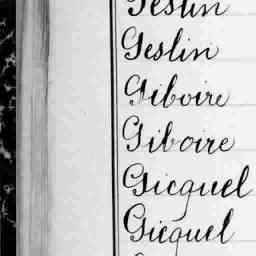 Geslin
Geslin
Giboire
Giboire
Gicquel
Gicquel